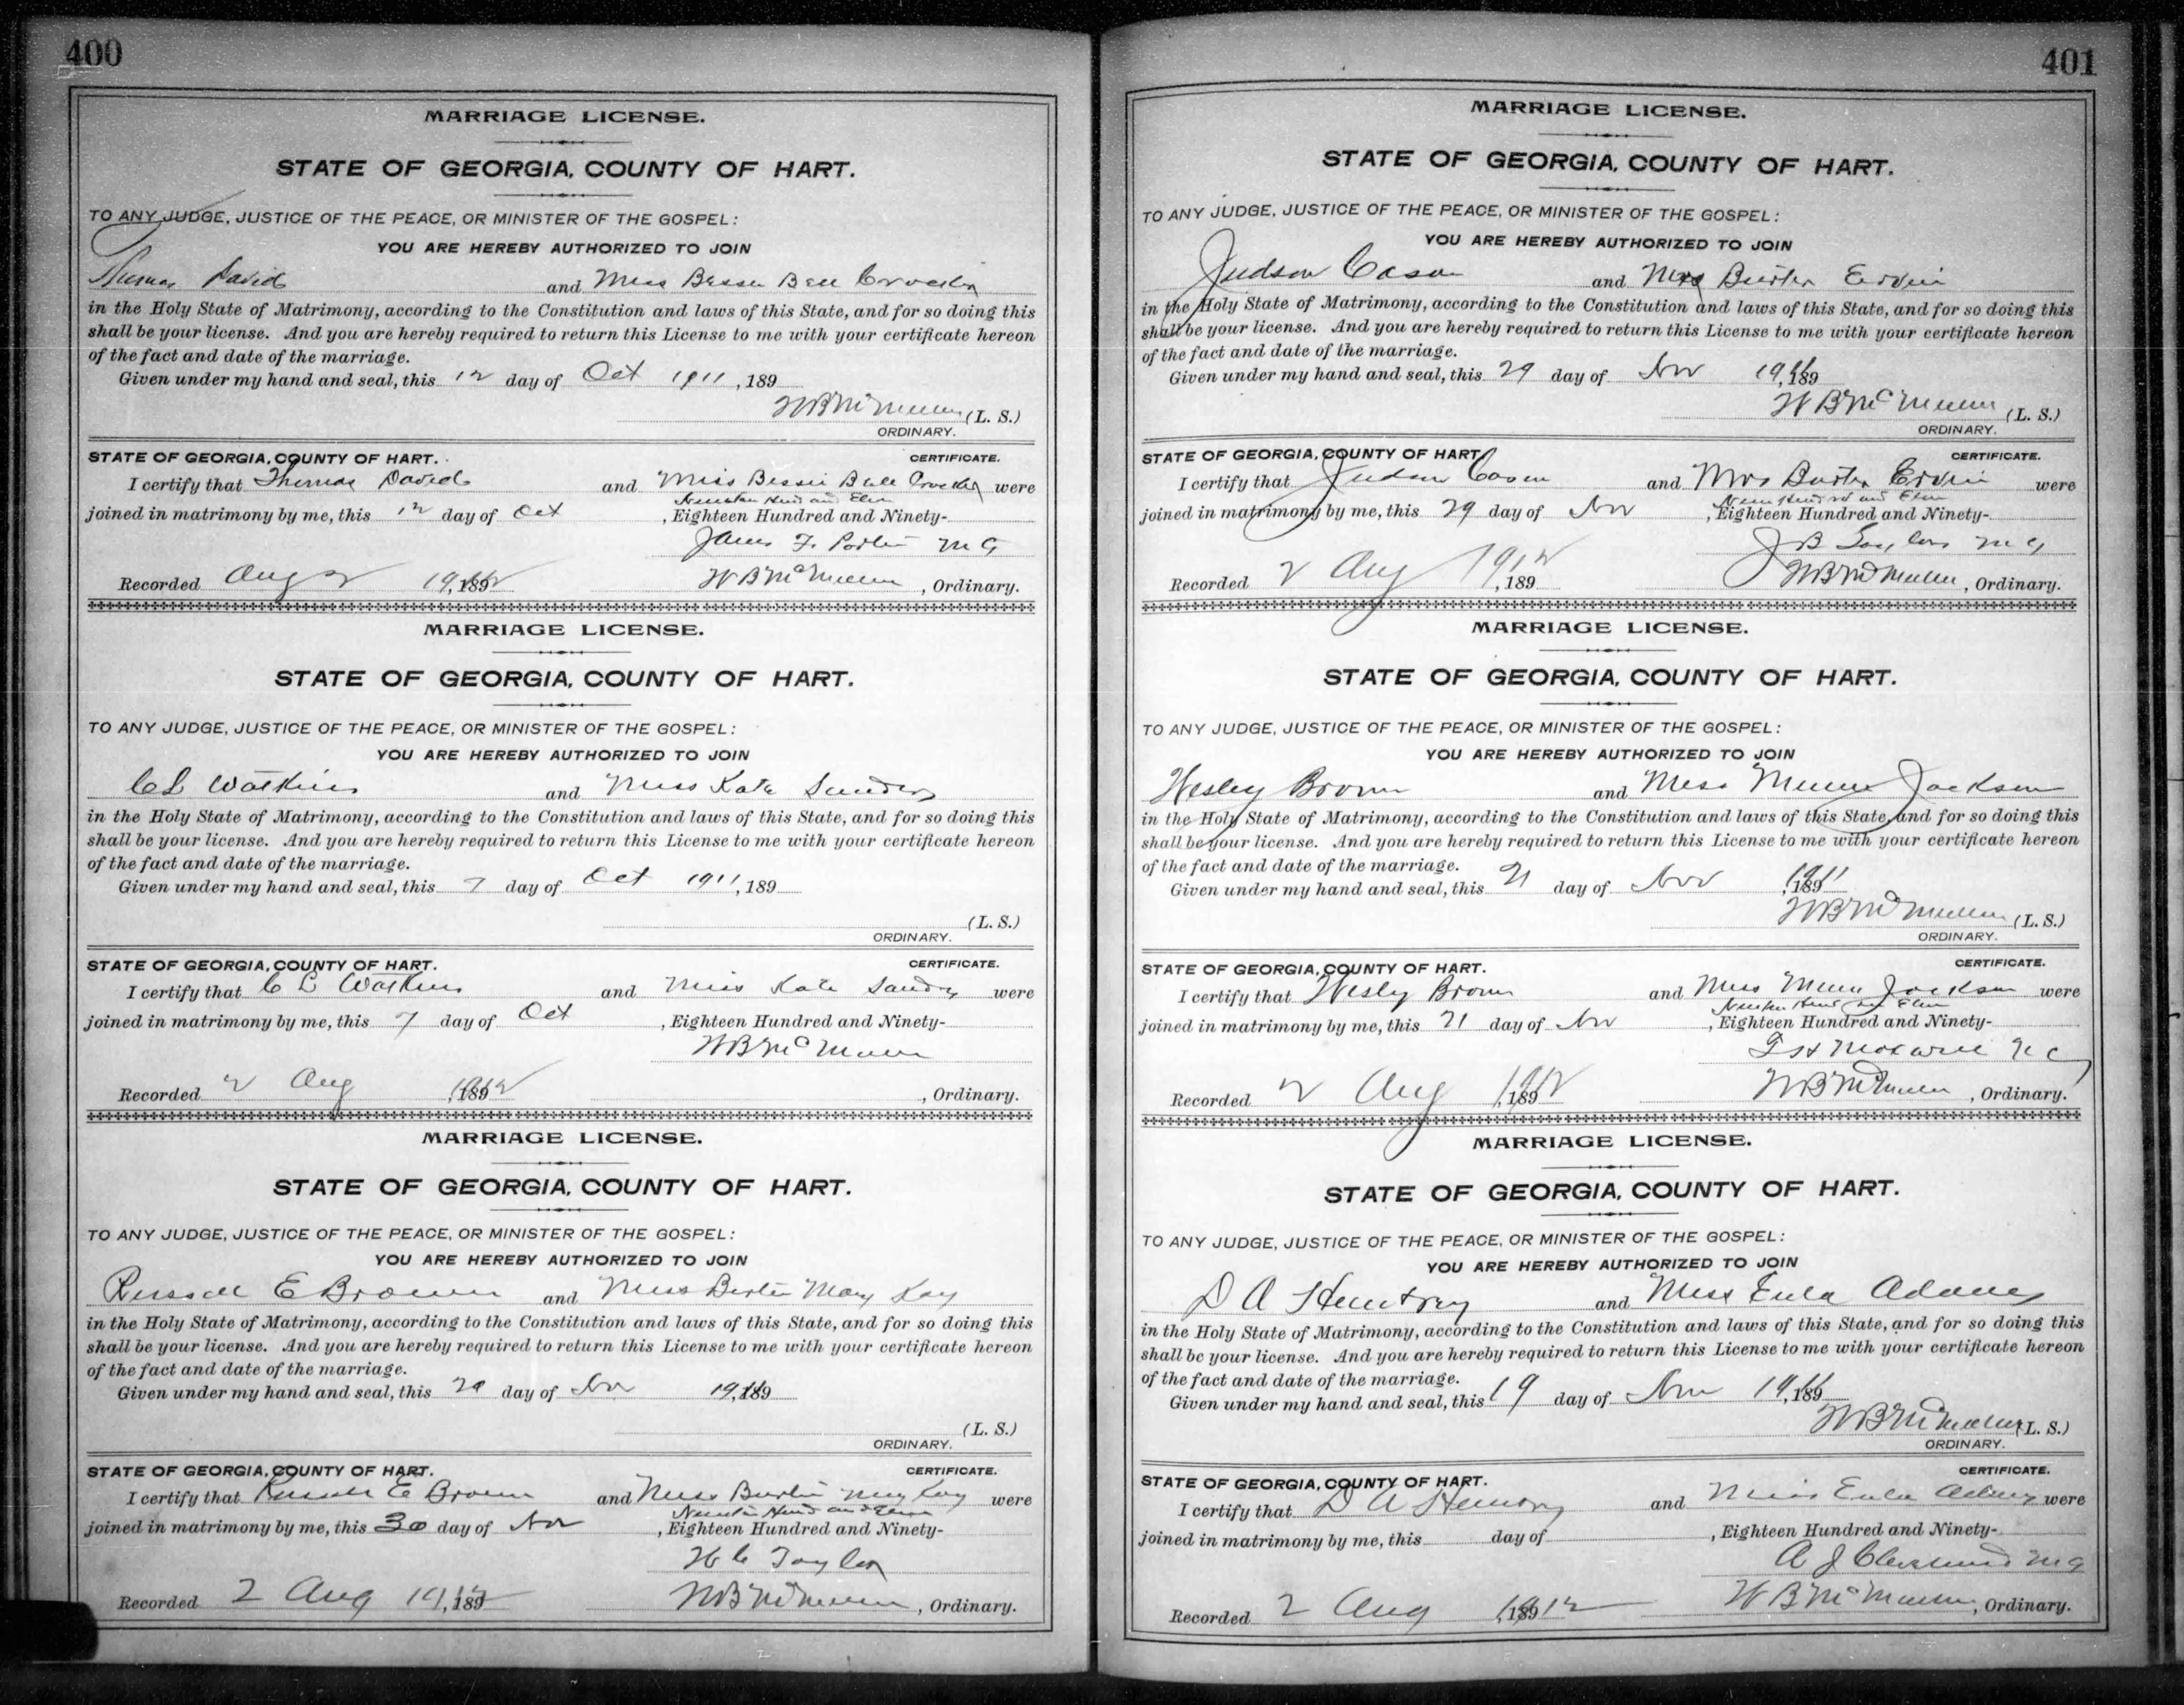 400
MARRIAGE LICENSE.
STATE OF GEORGIA, COUNTY OF HART.
TO ANY JUDGE, JUSTICE OF THE PEACE, OR MINISTER OF THE GOSPEL:
YOU ARE HEREBY AUTHORIZED TO JOIN
Thomas David and Miss Bessie Bell
in the Holy State of Matrimony, according to the Constitution and laws of this State, and for so doing this
shall be your license. And you are hereby required to return this License to me with your certificate hereon
of the fact and date of the marriage.
Given under my hand and seal, this 12 day of Oct 1911, 189
W B McMullin (L. S.)
ORDINARY.
STATE OF GEORGIA, COUNTY OF HART. CERTIFICATE.
I certify that Thomas David and Miss Bessie Bell were
Nineteen Hund and Elen
joined in matrimony by me, this 12 day of Oct, Eighteen Hundred and Ninety-
James F. M G
Recorded Aug 2 1912, 189 W B McMullin, Ordinary.
MARRIAGE LICENSE.
STATE OF GEORGIA, COUNTY OF HART.
TO ANY JUDGE, JUSTICE OF THE PEACE, OR MINISTER OF THE GOSPEL:
YOU ARE HEREBY AUTHORIZED TO JOIN
C L Watkins and Miss Kate Sanders
in the Holy State of Matrimony, according to the Constitution and laws of this State, and for so doing this
shall be your license. And you are hereby required to return this License to me with your certificate hereon
of the fact and date of the marriage.
Given under my hand and seal, this 7 day of Oct 1911, 189
(L. S.)
ORDINARY.
STATE OF GEORGIA, COUNTY OF HART. CERTIFICATE.
I certify that C L Watkins and Miss Kate Sanders were
joined in matrimony by me, this 7 day of Oct, Eighteen Hundred and Ninety-
W B McMullin
Recorded 2 Aug 1912, 189, Ordinary.
MARRIAGE LICENSE.
STATE OF GEORGIA, COUNTY OF HART.
TO ANY JUDGE, JUSTICE OF THE PEACE, OR MINISTER OF THE GOSPEL:
YOU ARE HEREBY AUTHORIZED TO JOIN
Russell E Brown and Miss May Kay
in the Holy State of Matrimony, according to the Constitution and laws of this State, and for so doing this
shall be your license. And you are hereby required to return this License to me with your certificate hereon
of the fact and date of the marriage.
Given under my hand and seal, this day of Nov 1911, 189
(L. S.)
ORDINARY.
STATE OF GEORGIA, COUNTY OF HART. CERTIFICATE.
I certify that Russell E Brown and Miss May Kay were
Nineteen Hund and Eleven
joined in matrimony by me, this 30 day of Nov, Eighteen Hundred and Ninety-
H C Taylor
Recorded 2 Aug 1912, 189 W B McMullin, Ordinary.
401
MARRIAGE LICENSE.
STATE OF GEORGIA, COUNTY OF HART.
TO ANY JUDGE, JUSTICE OF THE PEACE, OR MINISTER OF THE GOSPEL:
YOU ARE HEREBY AUTHORIZED TO JOIN
Judson Cason and Mrs Ervin
in the Holy State of Matrimony, according to the Constitution and laws of this State, and for so doing this
shall be your license. And you are hereby required to return this License to me with your certificate hereon
of the fact and date of the marriage.
Given under my hand and seal, this 29 day of Nov 1911, 189
W B McMullin (L. S.)
ORDINARY.
STATE OF GEORGIA, COUNTY OF HART. CERTIFICATE.
I certify that Judson Cason and Mrs Ervin were
Nineteen Hundred and Eleven
joined in matrimony by me, this 29 day of Nov, Eighteen Hundred and Ninety-
J B Taylor M G
Recorded 2 Aug 1912, 189 W B McMullin, Ordinary.
MARRIAGE LICENSE.
STATE OF GEORGIA, COUNTY OF HART.
TO ANY JUDGE, JUSTICE OF THE PEACE, OR MINISTER OF THE GOSPEL:
YOU ARE HEREBY AUTHORIZED TO JOIN
Wesley Brown and Miss Jackson
in the Holy State of Matrimony, according to the Constitution and laws of this State, and for so doing this
shall be your license. And you are hereby required to return this License to me with your certificate hereon
of the fact and date of the marriage.
Given under my hand and seal, this 21 day of Nov 1911, 189
W B McMullin (L. S.)
ORDINARY.
STATE OF GEORGIA, COUNTY OF HART. CERTIFICATE.
I certify that Wesley Brown and Miss Jackson were
Nineteen Hund and Elen
joined in matrimony by me, this 21 day of Nov, Eighteen Hundred and Ninety-
Recorded 2 Aug 1912, 189 W B McMullin, Ordinary.
MARRIAGE LICENSE.
STATE OF GEORGIA, COUNTY OF HART.
TO ANY JUDGE, JUSTICE OF THE PEACE, OR MINISTER OF THE GOSPEL:
YOU ARE HEREBY AUTHORIZED TO JOIN
D A and Miss Eula Adams
in the Holy State of Matrimony, according to the Constitution and laws of this State, and for so doing this
shall be your license. And you are hereby required to return this License to me with your certificate hereon
of the fact and date of the marriage.
Given under my hand and seal, this 19 day of Nov 1911, 189
W B McMullin (L. S.)
ORDINARY.
STATE OF GEORGIA, COUNTY OF HART. CERTIFICATE.
I certify that D A and Miss Eula Adams were
joined in matrimony by me, this day of, Eighteen Hundred and Ninety-
A J M G
Recorded 2 Aug 1912, 189 W B McMullin, Ordinary.